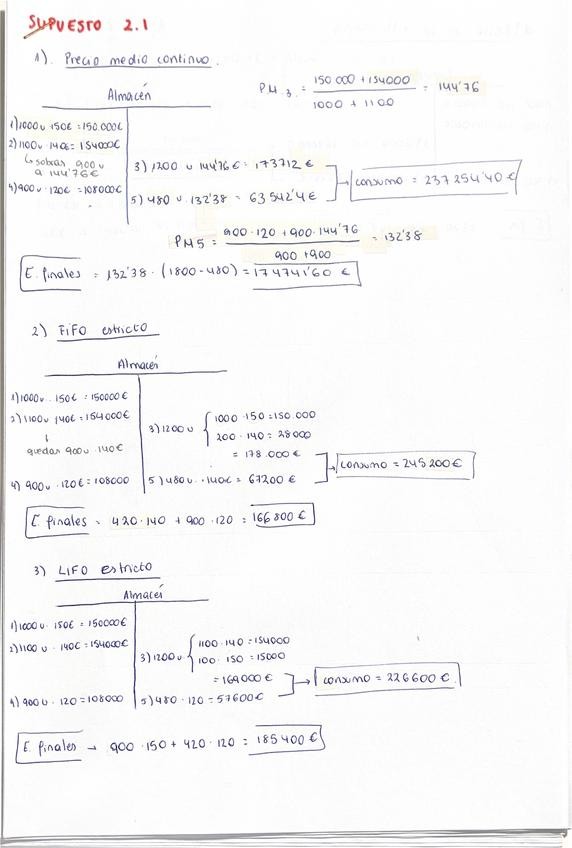 SUPUESTO 2.1
1). Precio medio continuo.
Almacén
PM3 = 150 000 + 154000 / 1000 + 1100 = 144'76
1) 1000 u 150€ = 150.000€
2) 1100 u 140€ = 154000€
↳ sobran 900 u
a 144'76€
3) 1200 u 144'76 € = 173712 €
4) 900 u · 120€ = 108000€
5) 480 u · 132'38 = 63542'4 €
consumo = 237 254'40 €
PM5 = 900 · 120 + 900 · 144'76 / 900 + 900 = 132'38
E. finales = 132'38 · (1800 - 480) = 174741'60 €
2) FIFO estricto
Almacén
1) 1000 u · 150€ = 150000€
2) 1100 u 140€ = 154000€
↓
quedan 900 u · 140€
3) 1200 u { 1000 · 150 = 150.000
200 · 140 = 28000
= 178.000 €
4) 900 u · 120€ = 108000
5) 480 u · 140€ = 67200 €
consumo = 245 200 €
E. finales = 420 · 140 + 900 · 120 = 166 800 €
3) LIFO estricto
Almacén
1) 1000 u · 150€ = 150000€
2) 1100 u · 140€ = 154000€
3) 1200 u { 1100 · 140 = 154000
100 · 150 = 15000
= 169000 €
4) 900 u · 120 = 108000
5) 480 · 120 = 57600 €
consumo = 226 600 €.
E. finales → 900 · 150 + 420 · 120 = 185 400 €